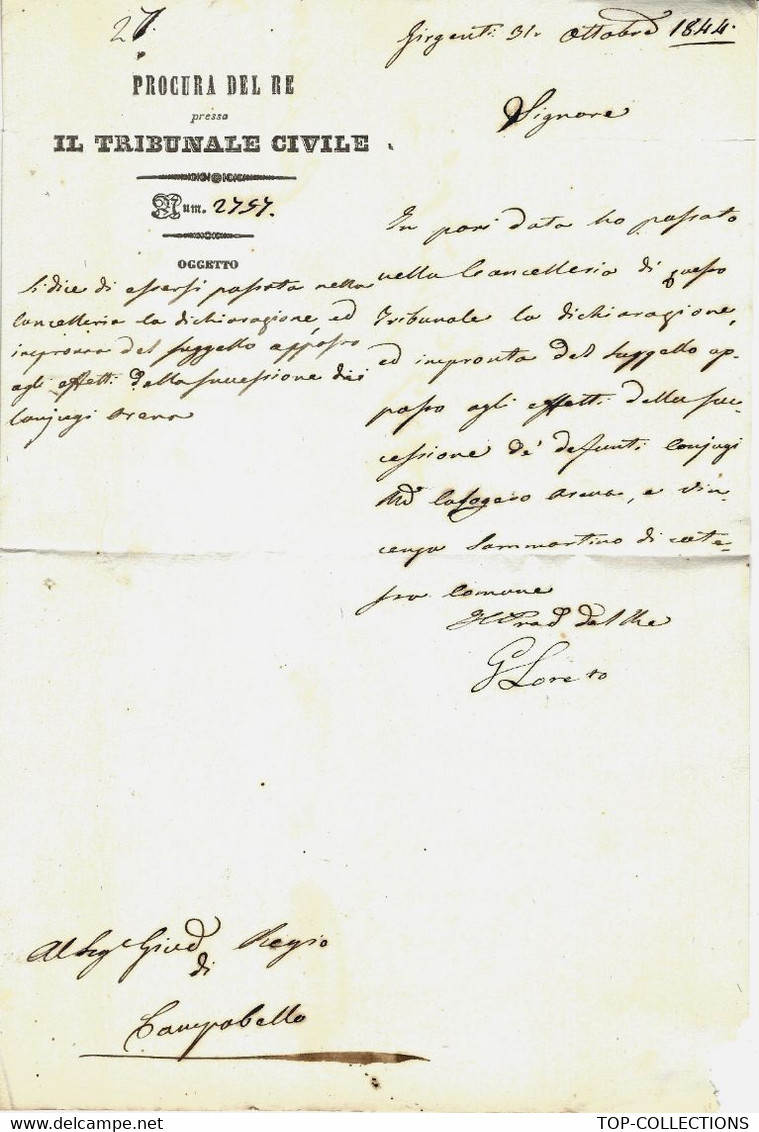 27.
Girgenti 31. Ottobre 1844.
PROCURA DEL RE
presso
IL TRIBUNALE CIVILE
Num. 2757.
OGGETTO
Si dice di essersi passata nella
Cancelleria la dichiarazione ed
impronta del suggello apposto
agli effetti della successione dei
Conjugi Arena
Signore
In pari data ho passato
nella Cancelleria di questo
Tribunale la dichiarazione,
ed impronta del suggello ap-
posto agli effetti della suc-
cessione de' defunti Conjugi
Calogero Arena, e Vin-
cenza Sammartino di cote-
sta Comune
Il Prod del Re
G Loreto
Al Sigr Giud Regio
di
Campobello
TOP-COLLECTIONS